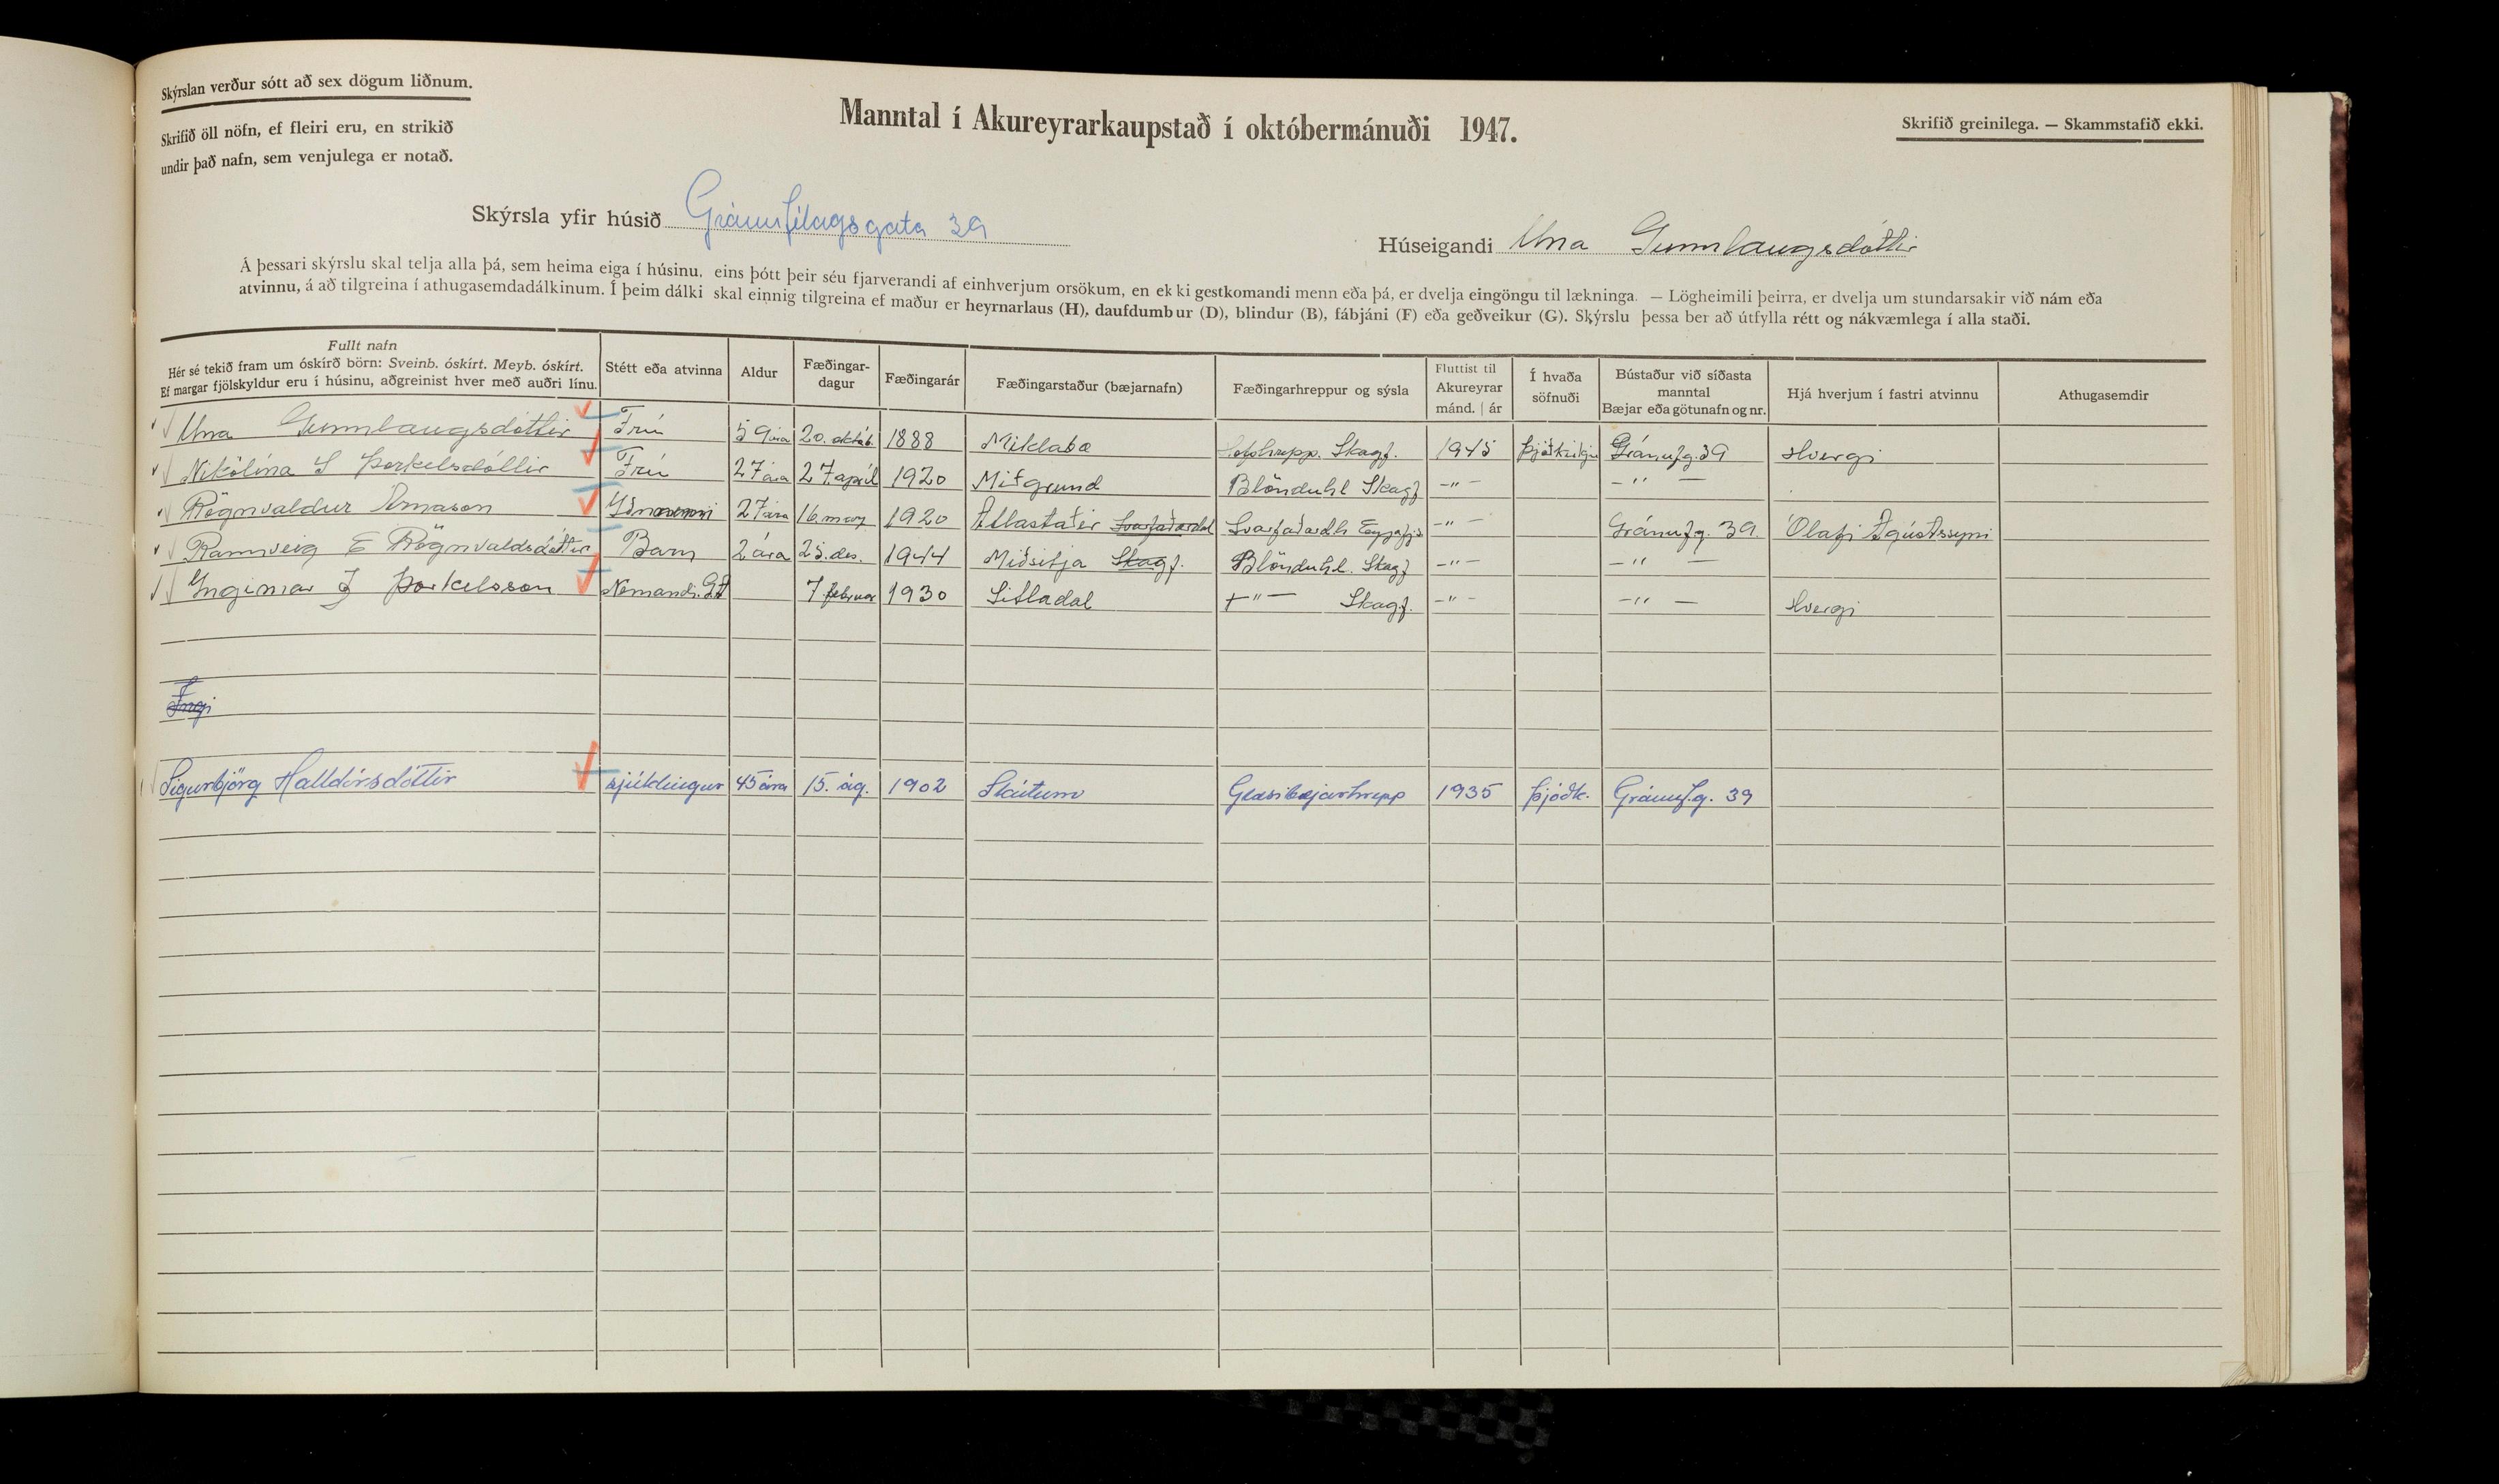 Skýrslan verður sótt að sex dögum liðnum.
Skrifið öll nöfn, ef fleiri eru, en strikið
undir það nafn, sem venjulega er notað.
Manntal í Akureyrarkaupstað í októbermánuði 1947.
Skrifið greinilega. — Skammstafið ekki.
Skýrsla yfir húsið Gránufélagsgata 39
Húseigandi Una Gunnlaugsdóttir
Á þessari skýrslu skal telja alla þá, sem heima eiga í húsinu, eins þótt þeir séu fjarverandi af einhverjum orsökum, en ekki gestkomandi menn eða þá, er dvelja eingöngu til lækninga. — Lögheimili þeirra, er dvelja um stundarsakir við nám eða
atvinnu, á að tilgreina í athugasemdadálkinum. Í þeim dálki skal einnig tilgreina ef maður er heyrnarlaus (H), daufdumbur (D), blindur (B), fábjáni (F) eða geðveikur (G). Skýrslu þessa ber að útfylla rétt og nákvæmlega í alla staði.
Fullt nafn
Hér sé tekið fram um óskírð börn: Sveinb. óskírt. Meyb. óskírt.
Ef margar fjölskyldur eru í húsinu, aðgreinist hver með auðri línu.
Stétt eða atvinna
Aldur
Fæðingar-
dagur
Fæðingarár
Fæðingarstaður (bæjarnafn)
Fæðingarhreppur og sýsla
Fluttist til
Akureyrar
mánd. | ár
Í hvaða
söfnuði
Bústaður við síðasta
manntal
Bæjar eða götunafn og nr.
Hjá hverjum í fastri atvinnu
Athugasemdir
Una Gunnlaugsdóttir Frú 59 ára 20. októb. 1888 Miklabæ Hofshrepp. Skagf. 1945 Þjóðkirkju Gránufg. 39 Hvergi
Nikólína S Þorkelsdóttir Frú 27 ára 27 apríl 1920 Miðgrund Blönduhl Skagf -"- -"-
Rögnvaldur Árnason 27 ára 16 marz 1920 Atlastaðir Svarfaðardal Svarfaðardh Eyjafj.s -"- Gránufg. 39. Ólafi Ágústssyni
Rannveig E Rögnvaldsdóttir Barn 2 ára 25. des. 1944 Miðsitja Skagf. Blönduhl. Skagf -"- -"-
Ingimar J Þorkelsson Nemandi 7 febrúar 1930 Litladal -"- Skagf. -"- -"- Hvergi
Ingi
Sigurbjörg Halldórsdóttir sjúklingur 45 ára 15. ág. 1902 Skútum Glæsibæjarhrepp 1935 Þjóðk. Gránuf.g. 39